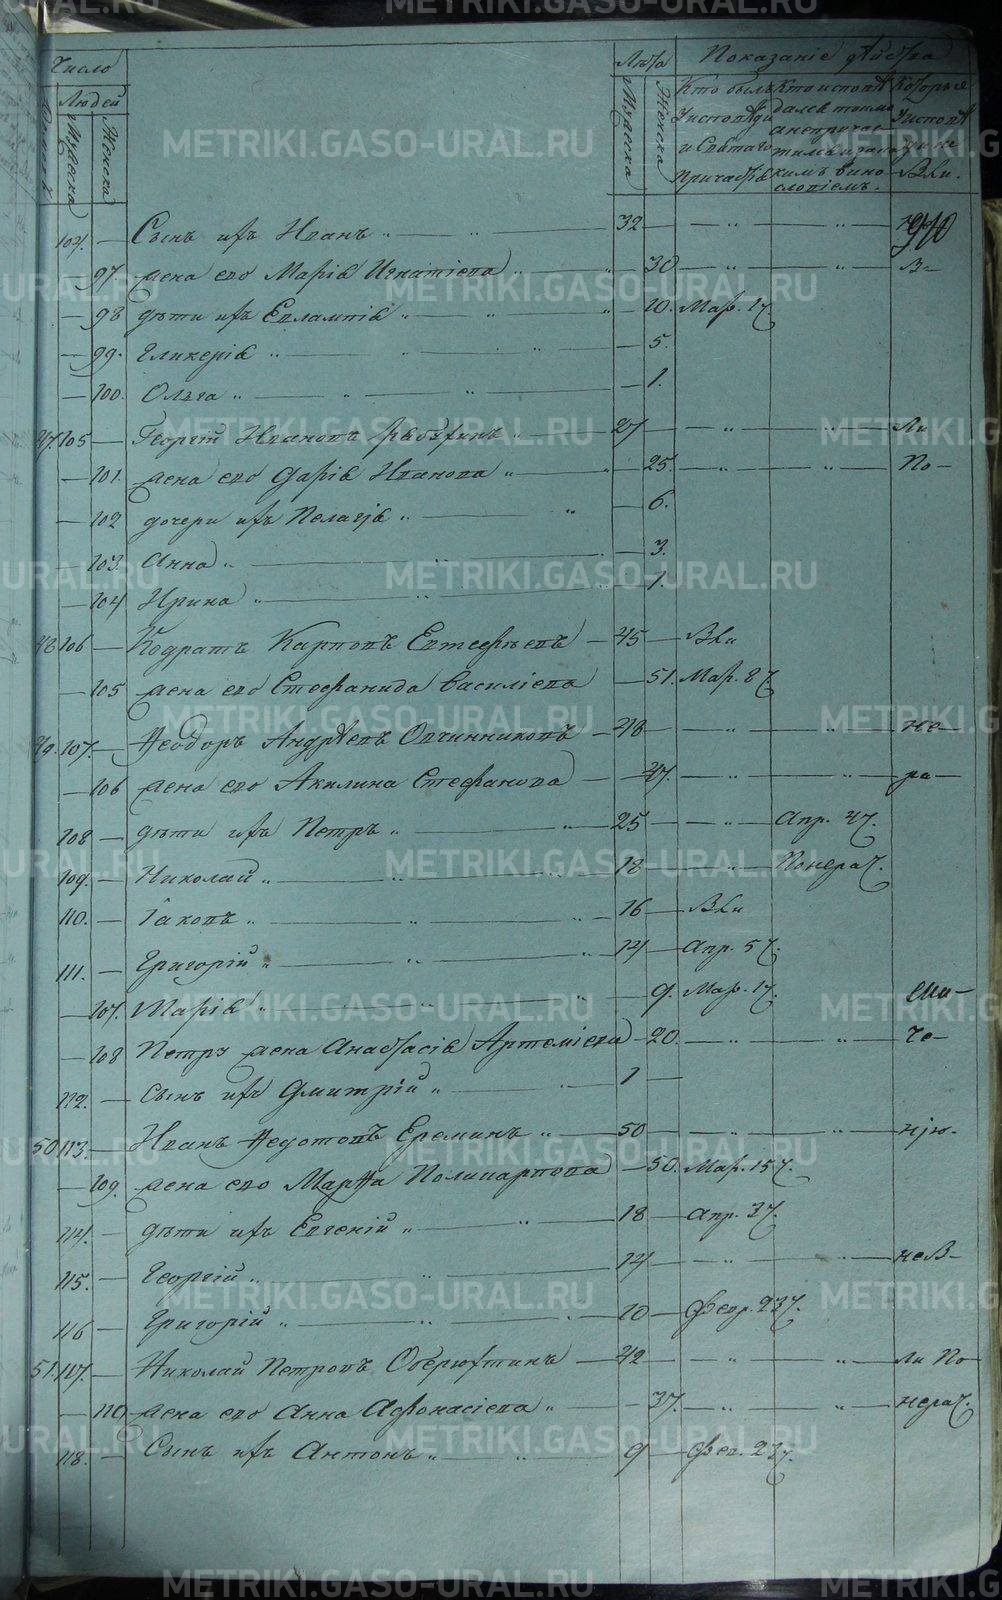 Число
Людей
Мужска
Женска
Лѣта
Мужска
Женска
Показаніе дѣйства
Кто былъ у исповѣди и Святаго причастія
Которые у исповѣди не были.
104. — Сынъ ихъ Иванъ „ — 32 — „ — „
97 жена его Марія Игнатіева „ — 30 — „ — „
— 98 дѣти ихъ Евлампія „ — 10. Мар. 17.
— 99. Гликерія „ — 5.
— 100. Ольга „ — 1.
47. 105 — Георгій Ивановъ — 27 — „ — „ — ли
— 101. жена его Дарія Иванова „ — 25. — „ — „ — По —
— 102 дочери ихъ Пелагія „ — 6.
— 103. Анна „ — 3.
— 104 Ирина „ — 1.
48. 106 — Кодратъ Карповъ Евтефѣевъ — 45 — Бли
— 105 жена его Стефанида Василіева — 51. Мар. 8
49. 107. — Ѳеодоръ Андрѣевъ Овчинниковъ — 48 — „ — „ — не —
— 106 жена его Акилина Стефанова — 47. — „ — „ — ра —
108 — дѣти ихъ Петръ „ — 25 — „ — Апр. 4
109. — Николай „ — 18 — „ — Понерач.
110. — Іаковъ „ — 16 — Бли
111. — Григорій „ — 14 — Апр. 5
— 107. Марія „ — 9. Мар. 17.
— 108 Петру жена Анастасія Артеміева — 20. — „ — „ — че —
112. — сынъ ихъ Дмитрій „ — 1 —
50 113. — Иванъ Ѳедотовъ Ереминъ „ — 50 — „ — „ — нію.
— 109. жена его Марѳа Поликарпова — 50. Мар. 15
114. — дѣти ихъ Евгеній „ — 18 — Апр. 3
115. — Георгій „ — 14 — „ — „
116 — Григорій „ — 10 — Февр. 23
51. 117. — Николай Петровъ Оберюхтинъ — 42 — „ — „ — ли По —
— 110 жена его Анна Афонасіева „ — 37. — „ — „ — нерач.
118. — Сынъ ихъ Антонъ „ — 9 — Фев. 23
METRIKI.GASO-URAL.RU